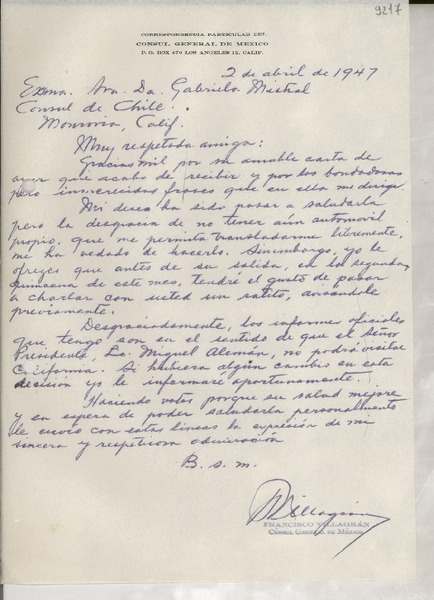 9217
CORRESPONDENCIA PARTICULAR DEL
CONSUL GENERAL DE MEXICO
P. O. BOX 470 LOS ANGELES 12, CALIF.
2 de abril de 1947
Exma. Sra. Da. Gabriela Mistral
Consul de Chile.
Monrovia, Calif.
Muy respetada amiga:
Gracias mil por su amable carta de
ayer que acabo de recibir y por las bondadosas
pero inmerecidas frases que en ella me dirige.
Mi deseo ha sido pasar a saludarla
pero la desgracia de no tener aún automovil
propio, que me permita transladarme libremente,
me ha vedado de hacerlo. Sinembargo, yo le
ofrezco que antes de su salida, en la segunda
quincena de este mes, tendré el gusto de pasar
a charlar con usted un ratito, avisandole
previamente.
Desgraciadamente, los informes oficiales
que tengo son en el sentido de que el Señor
Presidente, Lic. Miguel Alemán, no podrá visitar
California. Si hubiera algún cambio en esta
decision yo le informaré oportunamente.
Haciendo votos porque su salud mejore
y en espera de poder saludarla personalmente
le envio con estas lineas la expresión de mi
sincera y respetuosa admiración
B. s. m.
FRANCISCO VILLAGRÁN
CÓNSUL GENERAL DE MÉXICO